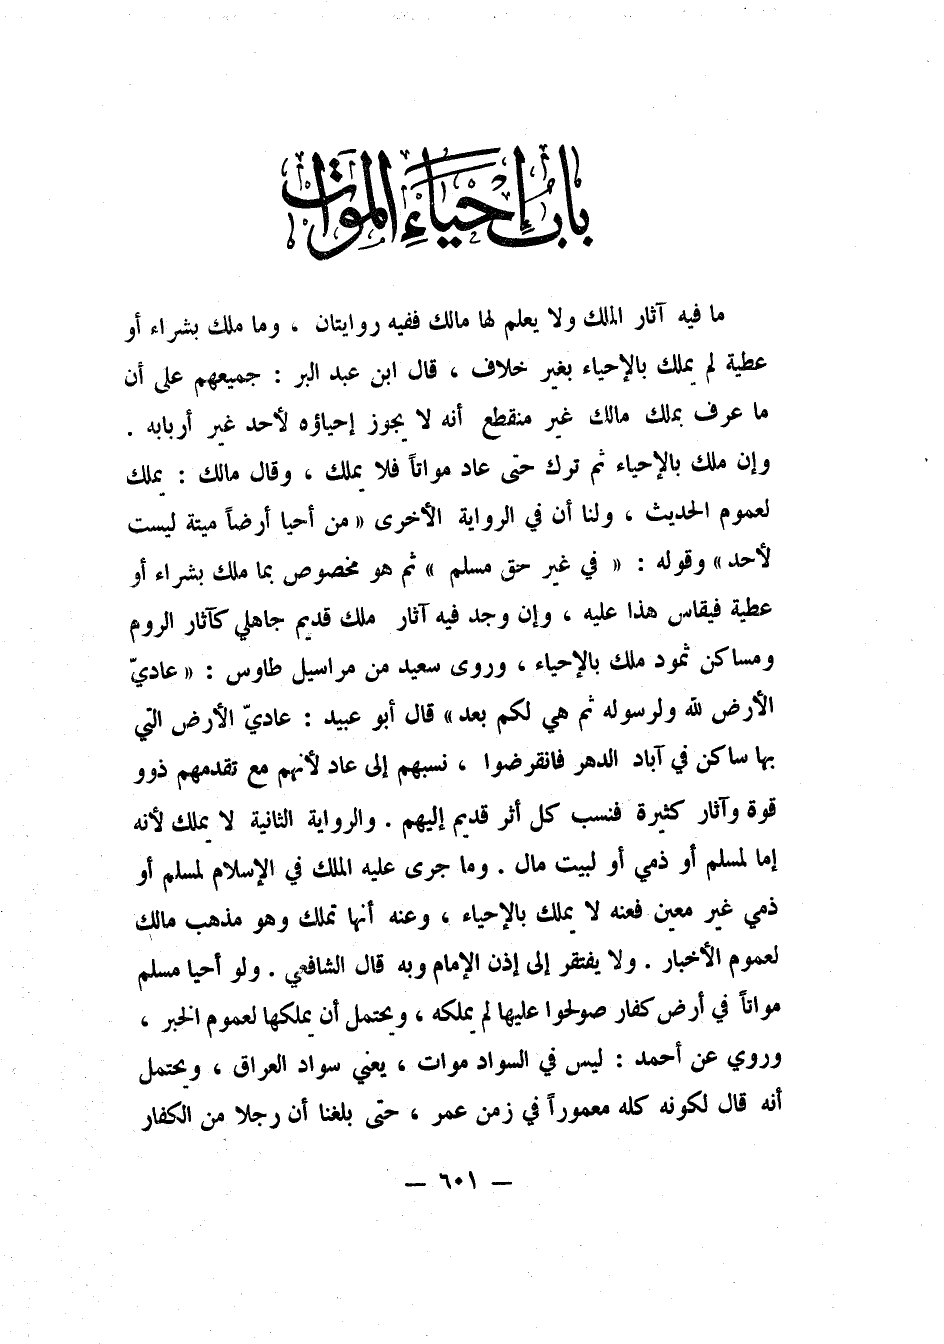 باب إحياء الموات
ما فيه آثار الملك ولا يعلم لها مالك ففيه روايتان ، وما ملك بشراء أو
عطية لم يملك بالإحياء بغير خلاف ، قال ابن عبد البر : جميعهم على أن
ما عرف بملك مالك غير منقطع أنه لا يجوز إحياؤه لأحد غير أربابه .
وإن ملك بالإحياء ثم ترك حتى عاد مواتاً فلا يملك ، وقال مالك : يملك
لعموم الحديث ، ولنا أن في الرواية الأخرى « من أحيا أرضاً ميتة ليست
لأحد » وقوله : « في غير حق مسلم » ثم هو مخصوص بما ملك بشراء أو
عطية فيقاس هذا عليه ، وإن وجد فيه آثار ملك قديم جاهلي كآثار الروم
ومساكن ثمود ملك بالإحياء ، وروى سعيد من مراسيل طاوس : « عاديّ
الأرض لله ولرسوله ثم هي لكم بعد » قال أبو عبيد : عاديّ الأرض التي
بها ساكن في آباد الدهر فانقرضوا ، نسبهم إلى عاد لأنهم مع تقدمهم ذوو
قوة وآثار كثيرة فنسب كل أثر قديم إليهم . والرواية الثانية لا يملك لأنه
إما لمسلم أو ذمي أو لبيت مال . وما جرى عليه الملك في الإسلام لمسلم أو
ذمي غير معين فعنه لا يملك بالإحياء ، وعنه أنها تملك وهو مذهب مالك
لعموم الأخبار . ولا يفتقر إلى إذن الإمام وبه قال الشافعي . ولو أحيا مسلم
مواتاً في أرض كفار صولحوا عليها لم يملكه ، ويحتمل أن يملكها لعموم الخبر ،
وروي عن أحمد : ليس في السواد موات ، يعني سواد العراق ، ويحتمل
أنه قال لكونه كله معموراً في زمن عمر ، حتى بلغنا أن رجلا من الكفار
— ٦٠١ —